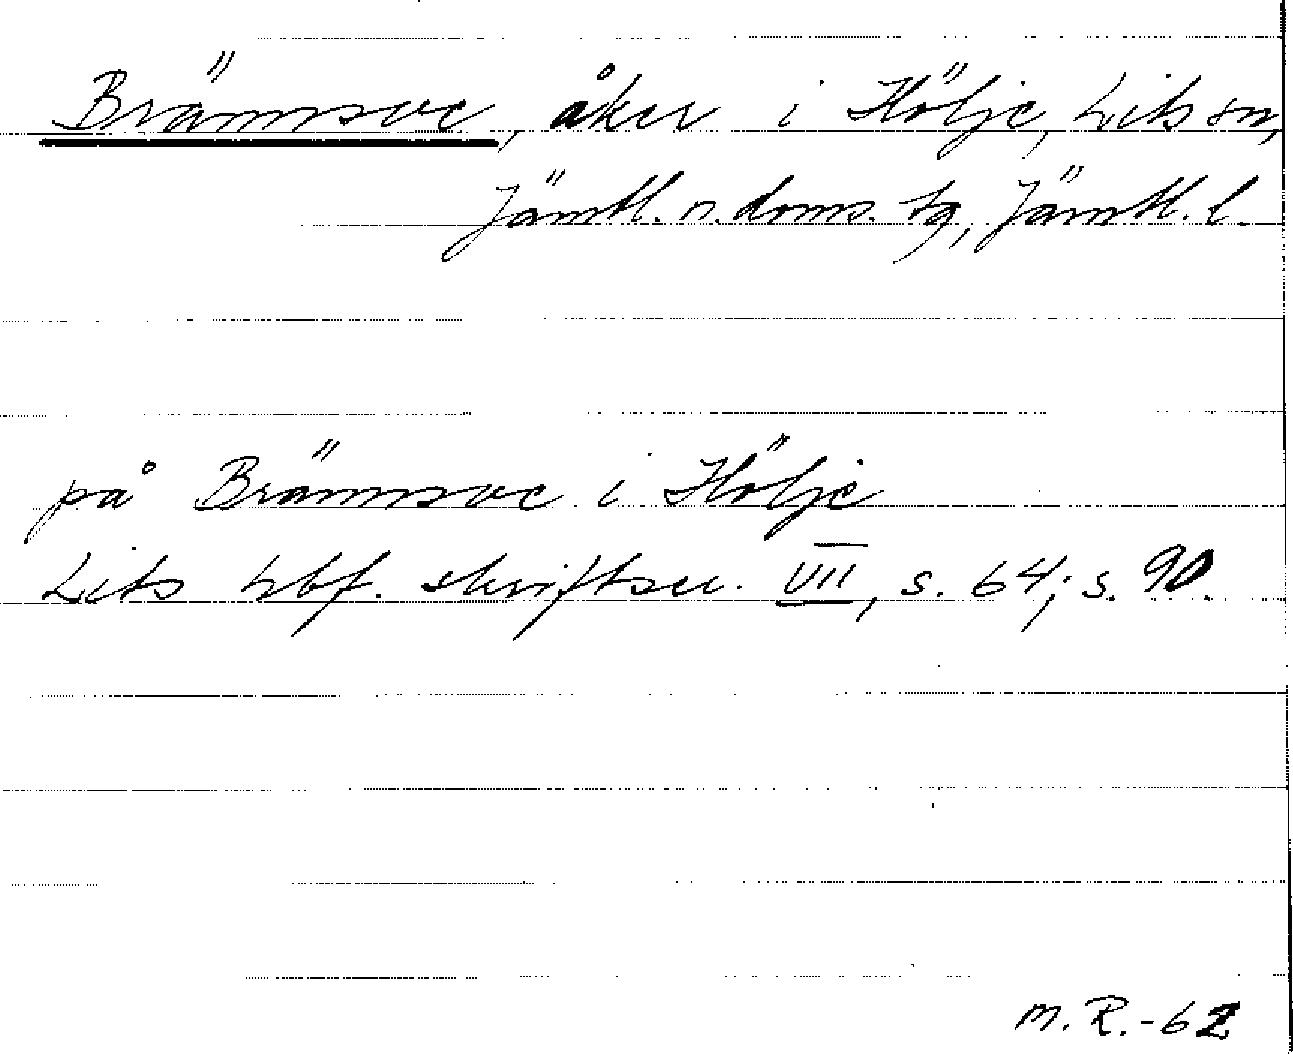 Brännsve, åker i Hölje, Lits sn,
Jämtl. n. doms. tg, Jämtl. l.
på Brännsve i Hölje
Lits hbf. skriftser. VII, s. 64; s. 90.
M. R. -62